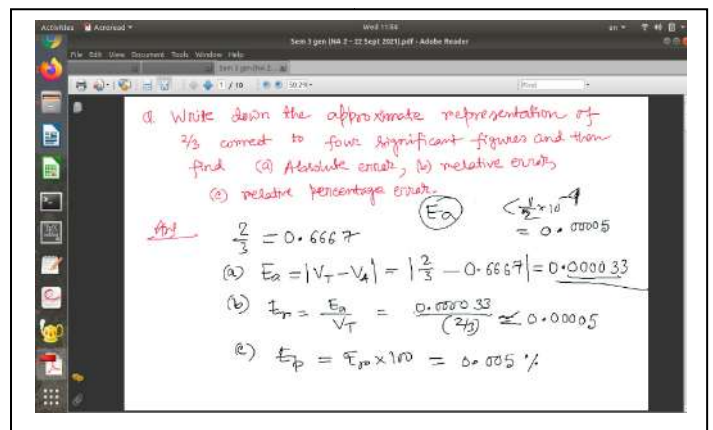 Activities Acroread Wed 11:56 en
Sem 3 gen (NA 2 - 22 Sept 2021).pdf - Adobe Reader
File Edit View Document Tools Window Help
Sem 3 gen (NA 2...
1 / 10 50.2% Find
Q Write down the approximate representation of
2/3 correct to four significant figures and then
find (a) Absolute error, (b) relative error,
(c) relative percentage error.
Ea < 1/2 × 10^-4
= 0.00005
Ans 2/3 = 0.6667
(a) Ea = |V_T - V_A| = |2/3 - 0.6667| = 0.000033
(b) Er = Ea/V_T = 0.000033/(2/3) ≃ 0.00005
(c) Ep = Er × 100 = 0.005 %